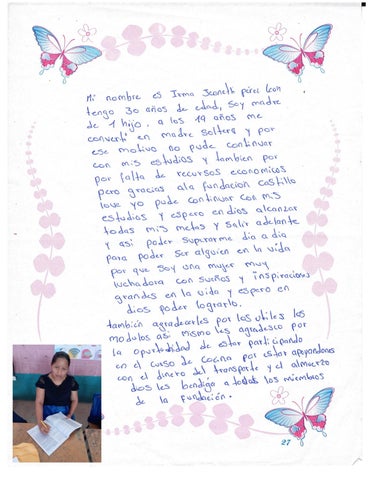 Mi nombre es Irma Jeaneth pérez Leon
tengo 30 años de edad, soy madre
de 1 hijo. a los 19 años me
convertí en madre soltera y por
ese motivo no pude continuar
con mis estudios y tambien por
por falta de recursos economicos
pero gracias ala fundacion castillo
love yo pude continuar con mis
estudios y espero en dios alcanzar
todas mis metas y salir adelante
y asi poder superarme dia a dia
para poder ser alguien en la vida
por que soy una mujer muy
luchadora con sueños y inspiraciones
grandes en la vida y espero en
dios poder lograrlo.
también agradecerles por los utiles los
modulos asi mismo les agradesco por
la oportunidad de estar participando
en el curso de cocina por estar apoyandonos
con el dinero del transporte y el almuerzo
dios les bendiga a todos los miembros
de la Fundación.
27